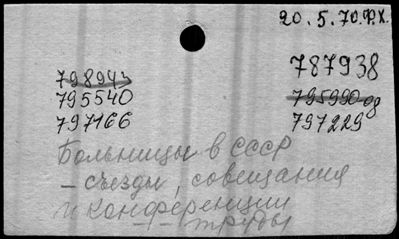 20.5.70.Ф.Х.
787938
798943
795540
795990 од
797166
797229
Больницы в СССР
– съезды, совещания
и конференции
– труды